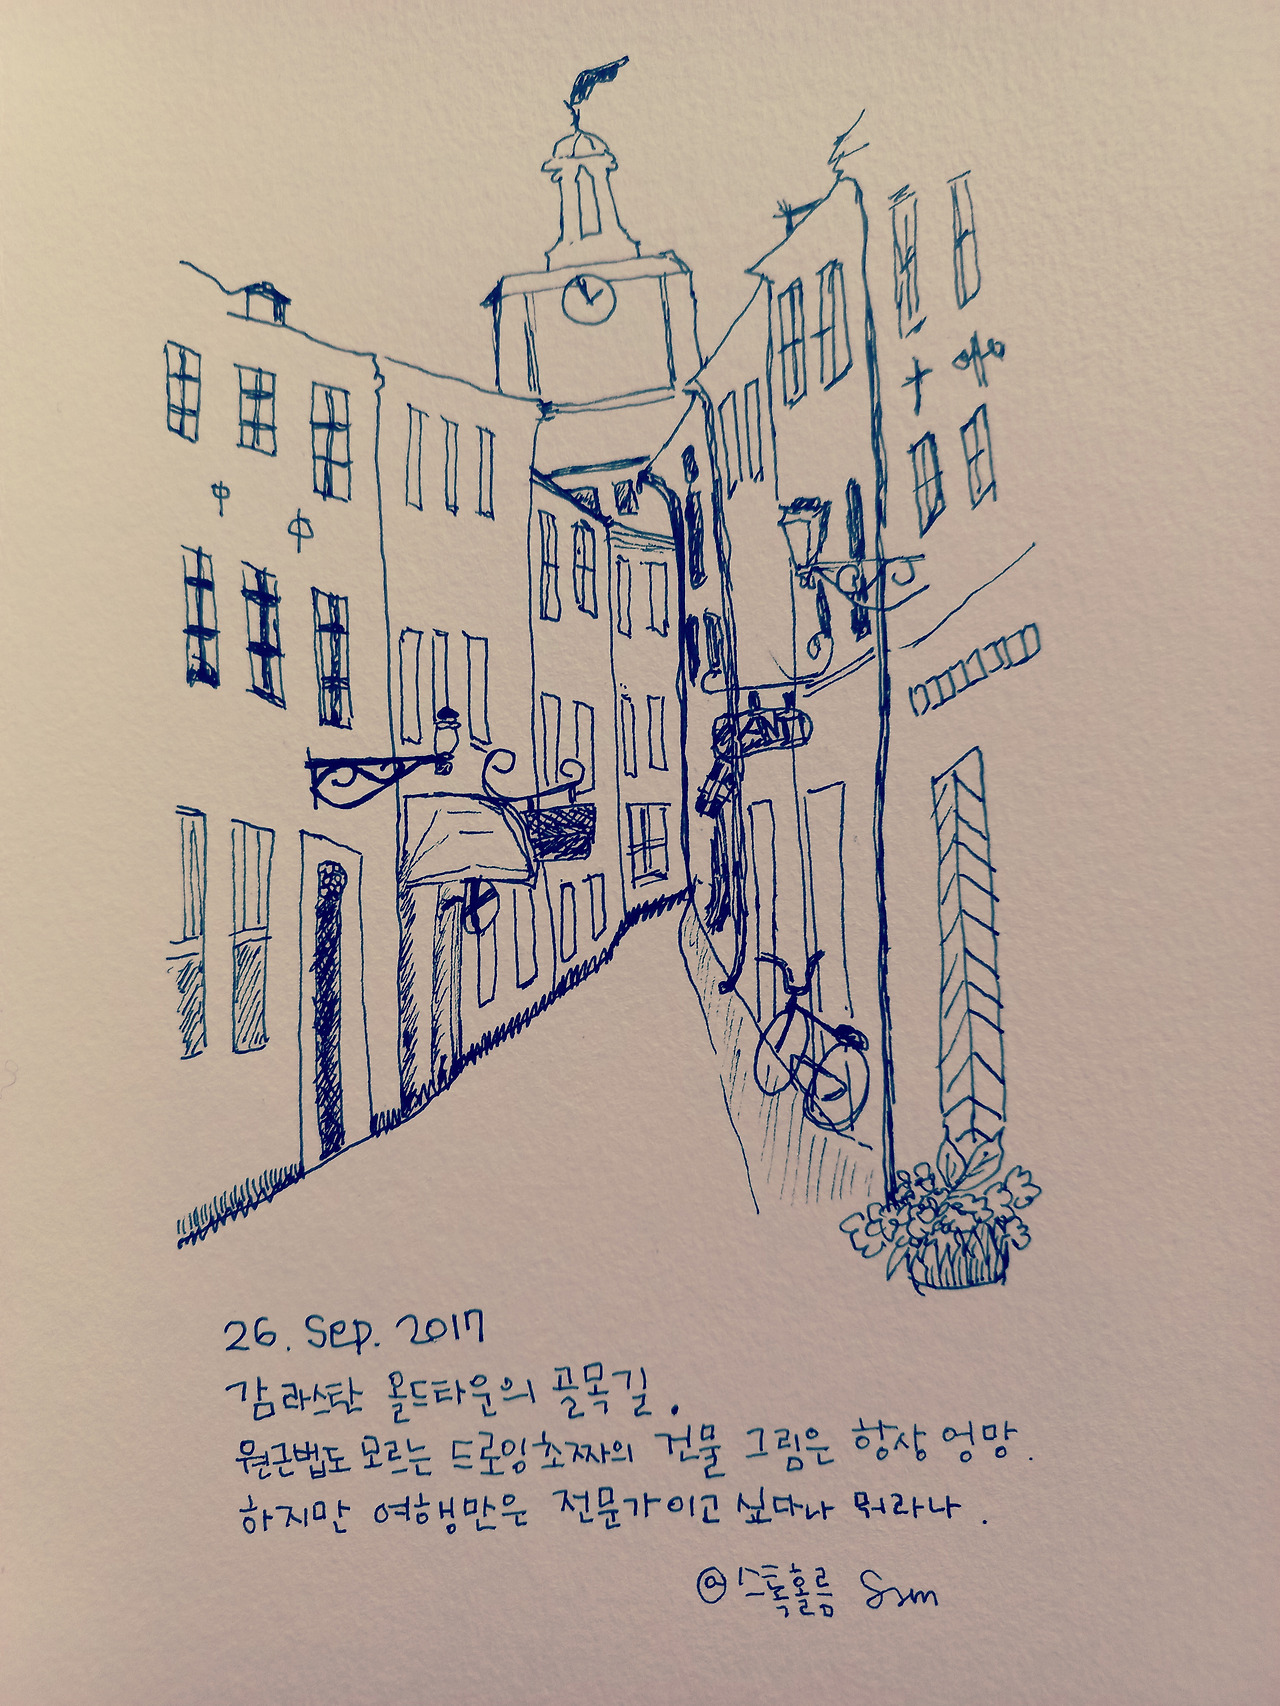 ANT
26. Sep. 2017
감라스탄 올드타운의 골목길.
원근법도 모르는 드로잉초짜의 건물 그림은 항상 엉망.
하지만 여행만은 전문가이고 싶다나 뭐라나.
@스톡홀름 Ssm